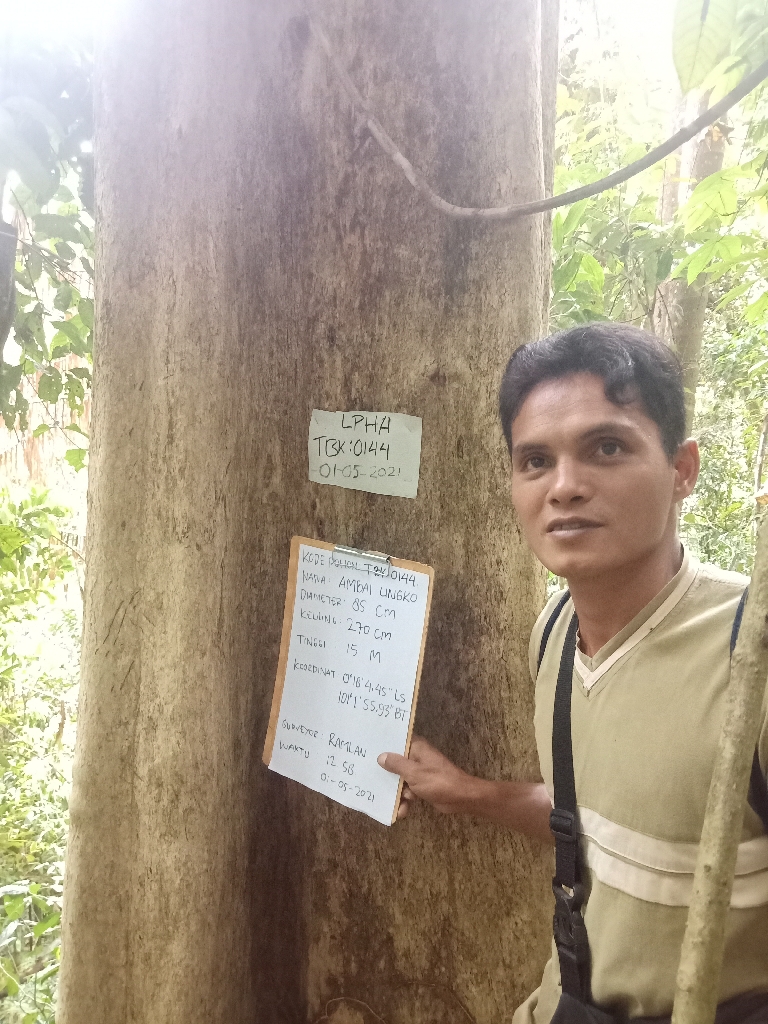 LPHA
TBK:0144
01-05-2021
KODE POHON TBK 0144.
NAMA: AMBAI UNGKO
DIAMETER: 85 CM
KELILING: 270 CM
TINGGI : 15 M
KOORDINAT 0°18'4,45" LS
101°1'55,93" BT
SURVEYOR: RAMLAN
WAKTU 12 58
01-05-2021